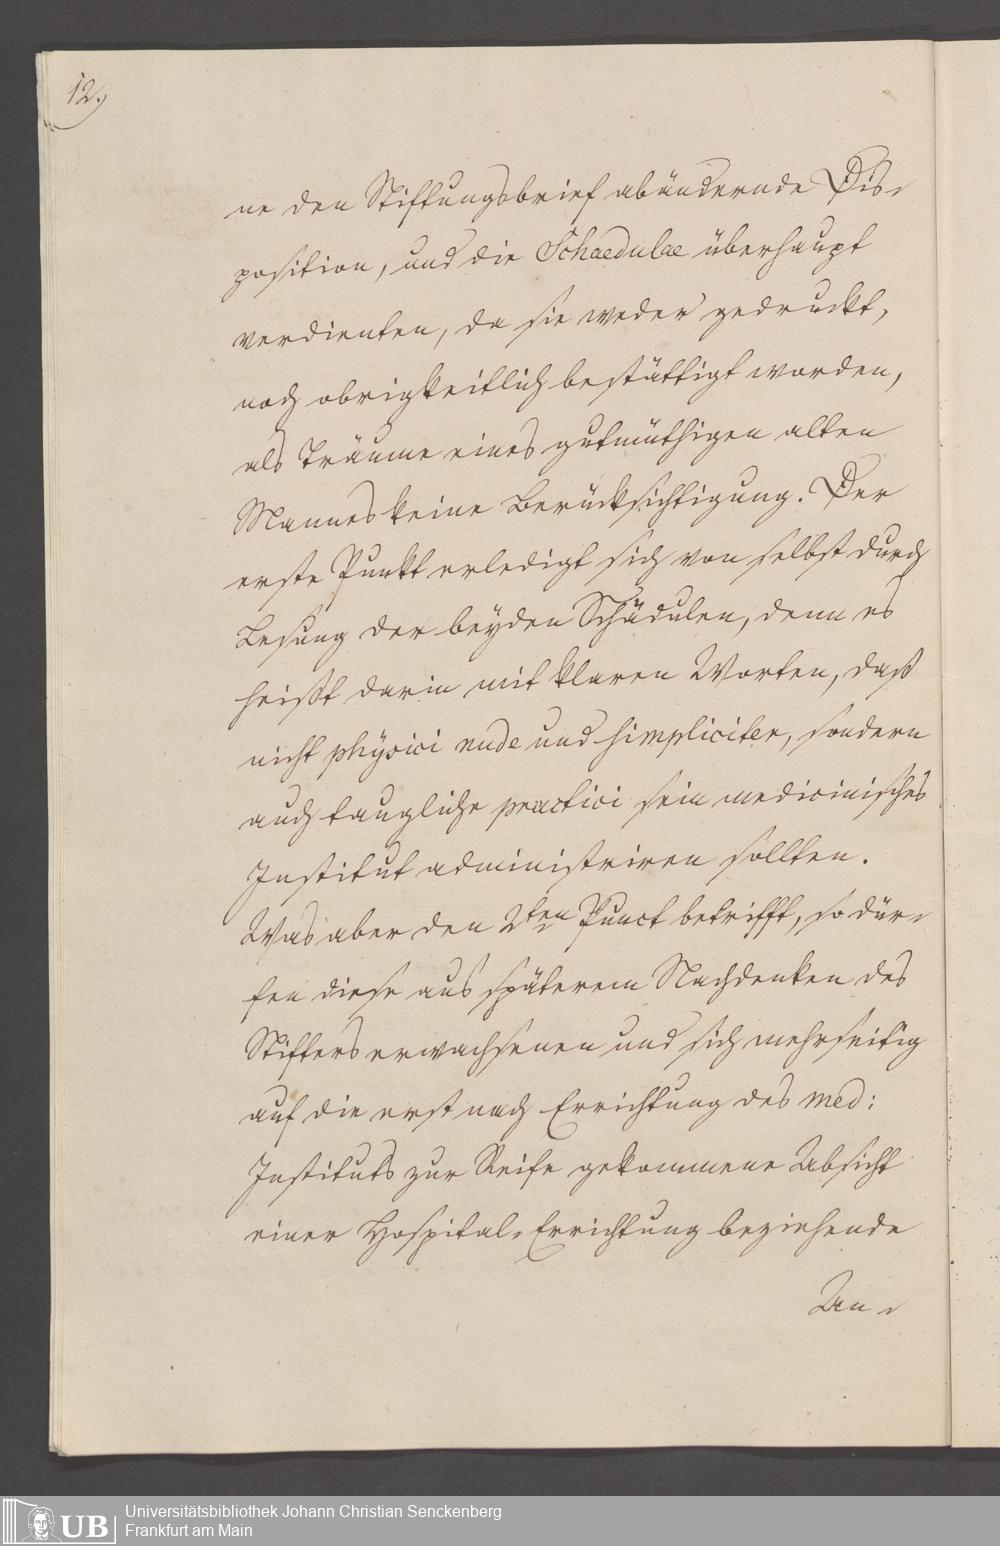 12.
ne den Stiftungsbrief abändernde Dis-
position, und die Schaedulae überhaupt
verdienten, da sie weder gedruckt,
noch obrigkeitlich bestättigt worden,
als Träume eines gutmüthigen alten
Mannes keine Berücksichtigung. Der
erste Punkt erledigt sich von selbst durch
Lesung der beyden Schädulen, denn es
heißt darin mit klaren Worten, daß
nicht physici nude und simpliciter, sondern
auch taugliche practici sein medicinisches
Institut administriren sollten.
Was aber den 2ten Punct betrifft, so dür-
fen diese aus späterem Nachdenken des
Stifters erwachsenen und sich mehrseitig
auf die erst nach Errichtung des med:
Instituts zur Reife gekommene Absicht
einer Hospital-Errichtung beziehende
An-
UB
Universitätsbibliothek Johann Christian Senckenberg
Frankfurt am Main